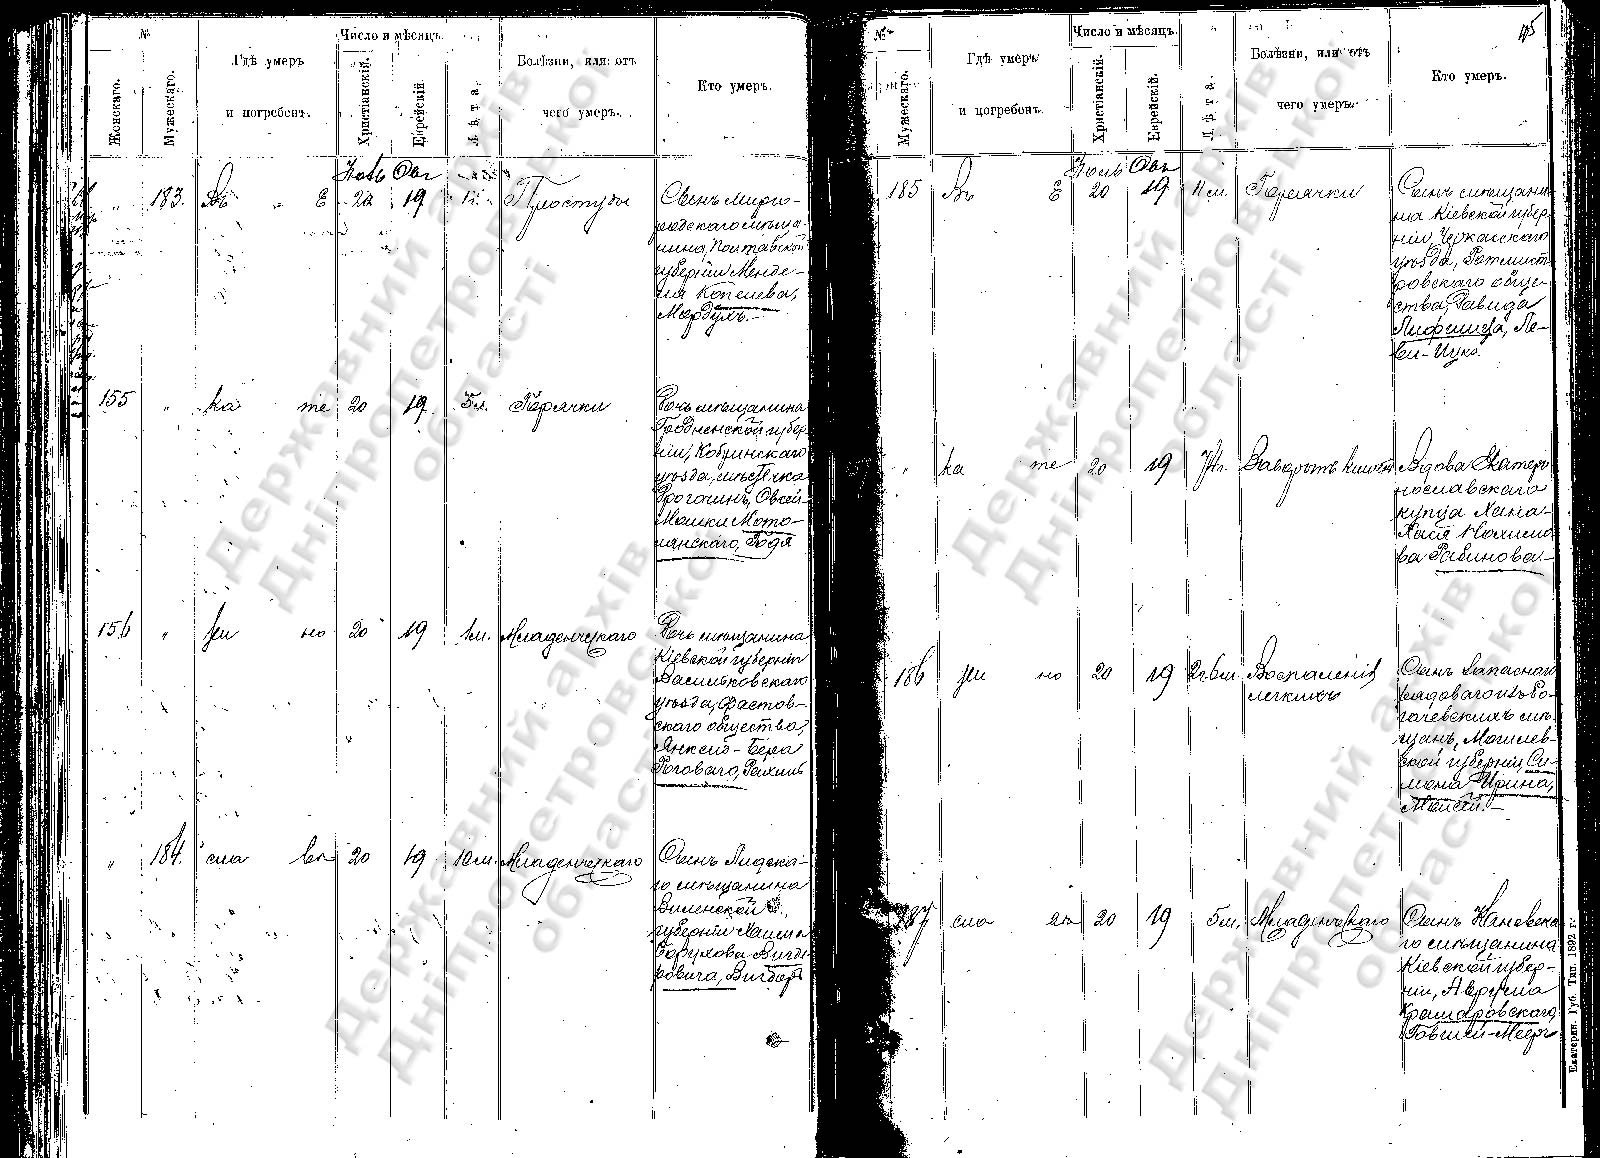 №
Женскаго.
Мужескаго.
Гдѣ умеръ
и погребенъ.
Число и мѣсяцъ.
Христіанскій.
Еврейскій
Лѣта.
Болѣзни, или отъ
чего умеръ.
Кто умеръ.
183. Въ Е 20 19 Простуды
Сынъ Мирго-
родскаго мѣща-
нина, Полтавской
губерніи Менде-
ля Копелева,
Мордухъ.
155 ка те 20 19 5 л. Горячки
Дочь мѣщанина
Гродненской губер-
ніи, Кобринскаго
уѣзда, мѣстечка
Дрогочинъ, Овсей-
Мошки Мото-
лянскаго, Годя
156 ри но 20 19 1 м. Младенческаго
Дочь мѣщанина
Кіевской губерніи
Васильковскаго
уѣзда, Фастов-
скаго общества,
Янкеля-Бера
Роговаго, Рахиль
184. сла 20 19 10 м. Младенческаго
Сынъ Лидска-
го мѣщанина
Виленской
губерніи Хаима
Борухова Вигде-
ровича, Вигдоръ
№
Мужескаго.
Гдѣ умеръ
и погребенъ.
Число и мѣсяцъ.
Христіанскій.
Еврейскій.
Лѣта.
Болѣзни, или отъ
чего умеръ.
Кто умеръ.
185 Въ Е 20 19 11 м. Горячки
Сынъ мѣщани-
на Кіевской губер-
ніи, Черкасскаго
уѣзда, Ротмист-
ровскаго обще-
ства, Давида
Лифшица, Ле-
ви-Ицко.
ка те 20 19 Заворотъ кишекъ
Вдова Екатери-
нославскаго
купца Хана-
Хася Нохимо-
ва Рабинова.
186 ри но 20 19 2 г. 6 м. Воспаленія
легкихъ
Сынъ запаснаго
рядоваго изъ Ро-
гачевскихъ мѣ-
щанъ, Могилев-
ской губерніи, Си-
мона Ирина,
Моисей.
187 сла 20 19 5 м. Младенческаго
Сынъ Каневска-
го мѣщанина
Кіевской губер-
ніи, Аврума
Крамаровскаго
Говшей-Меер
Екатерин. Губ. Тип. 1892 г.
Державний архів
Дніпропетровської
області
Державний архів
Дніпропетровської
області
Державний архів
Дніпропетровської
області
Державний архів
Дніпропетровської
області